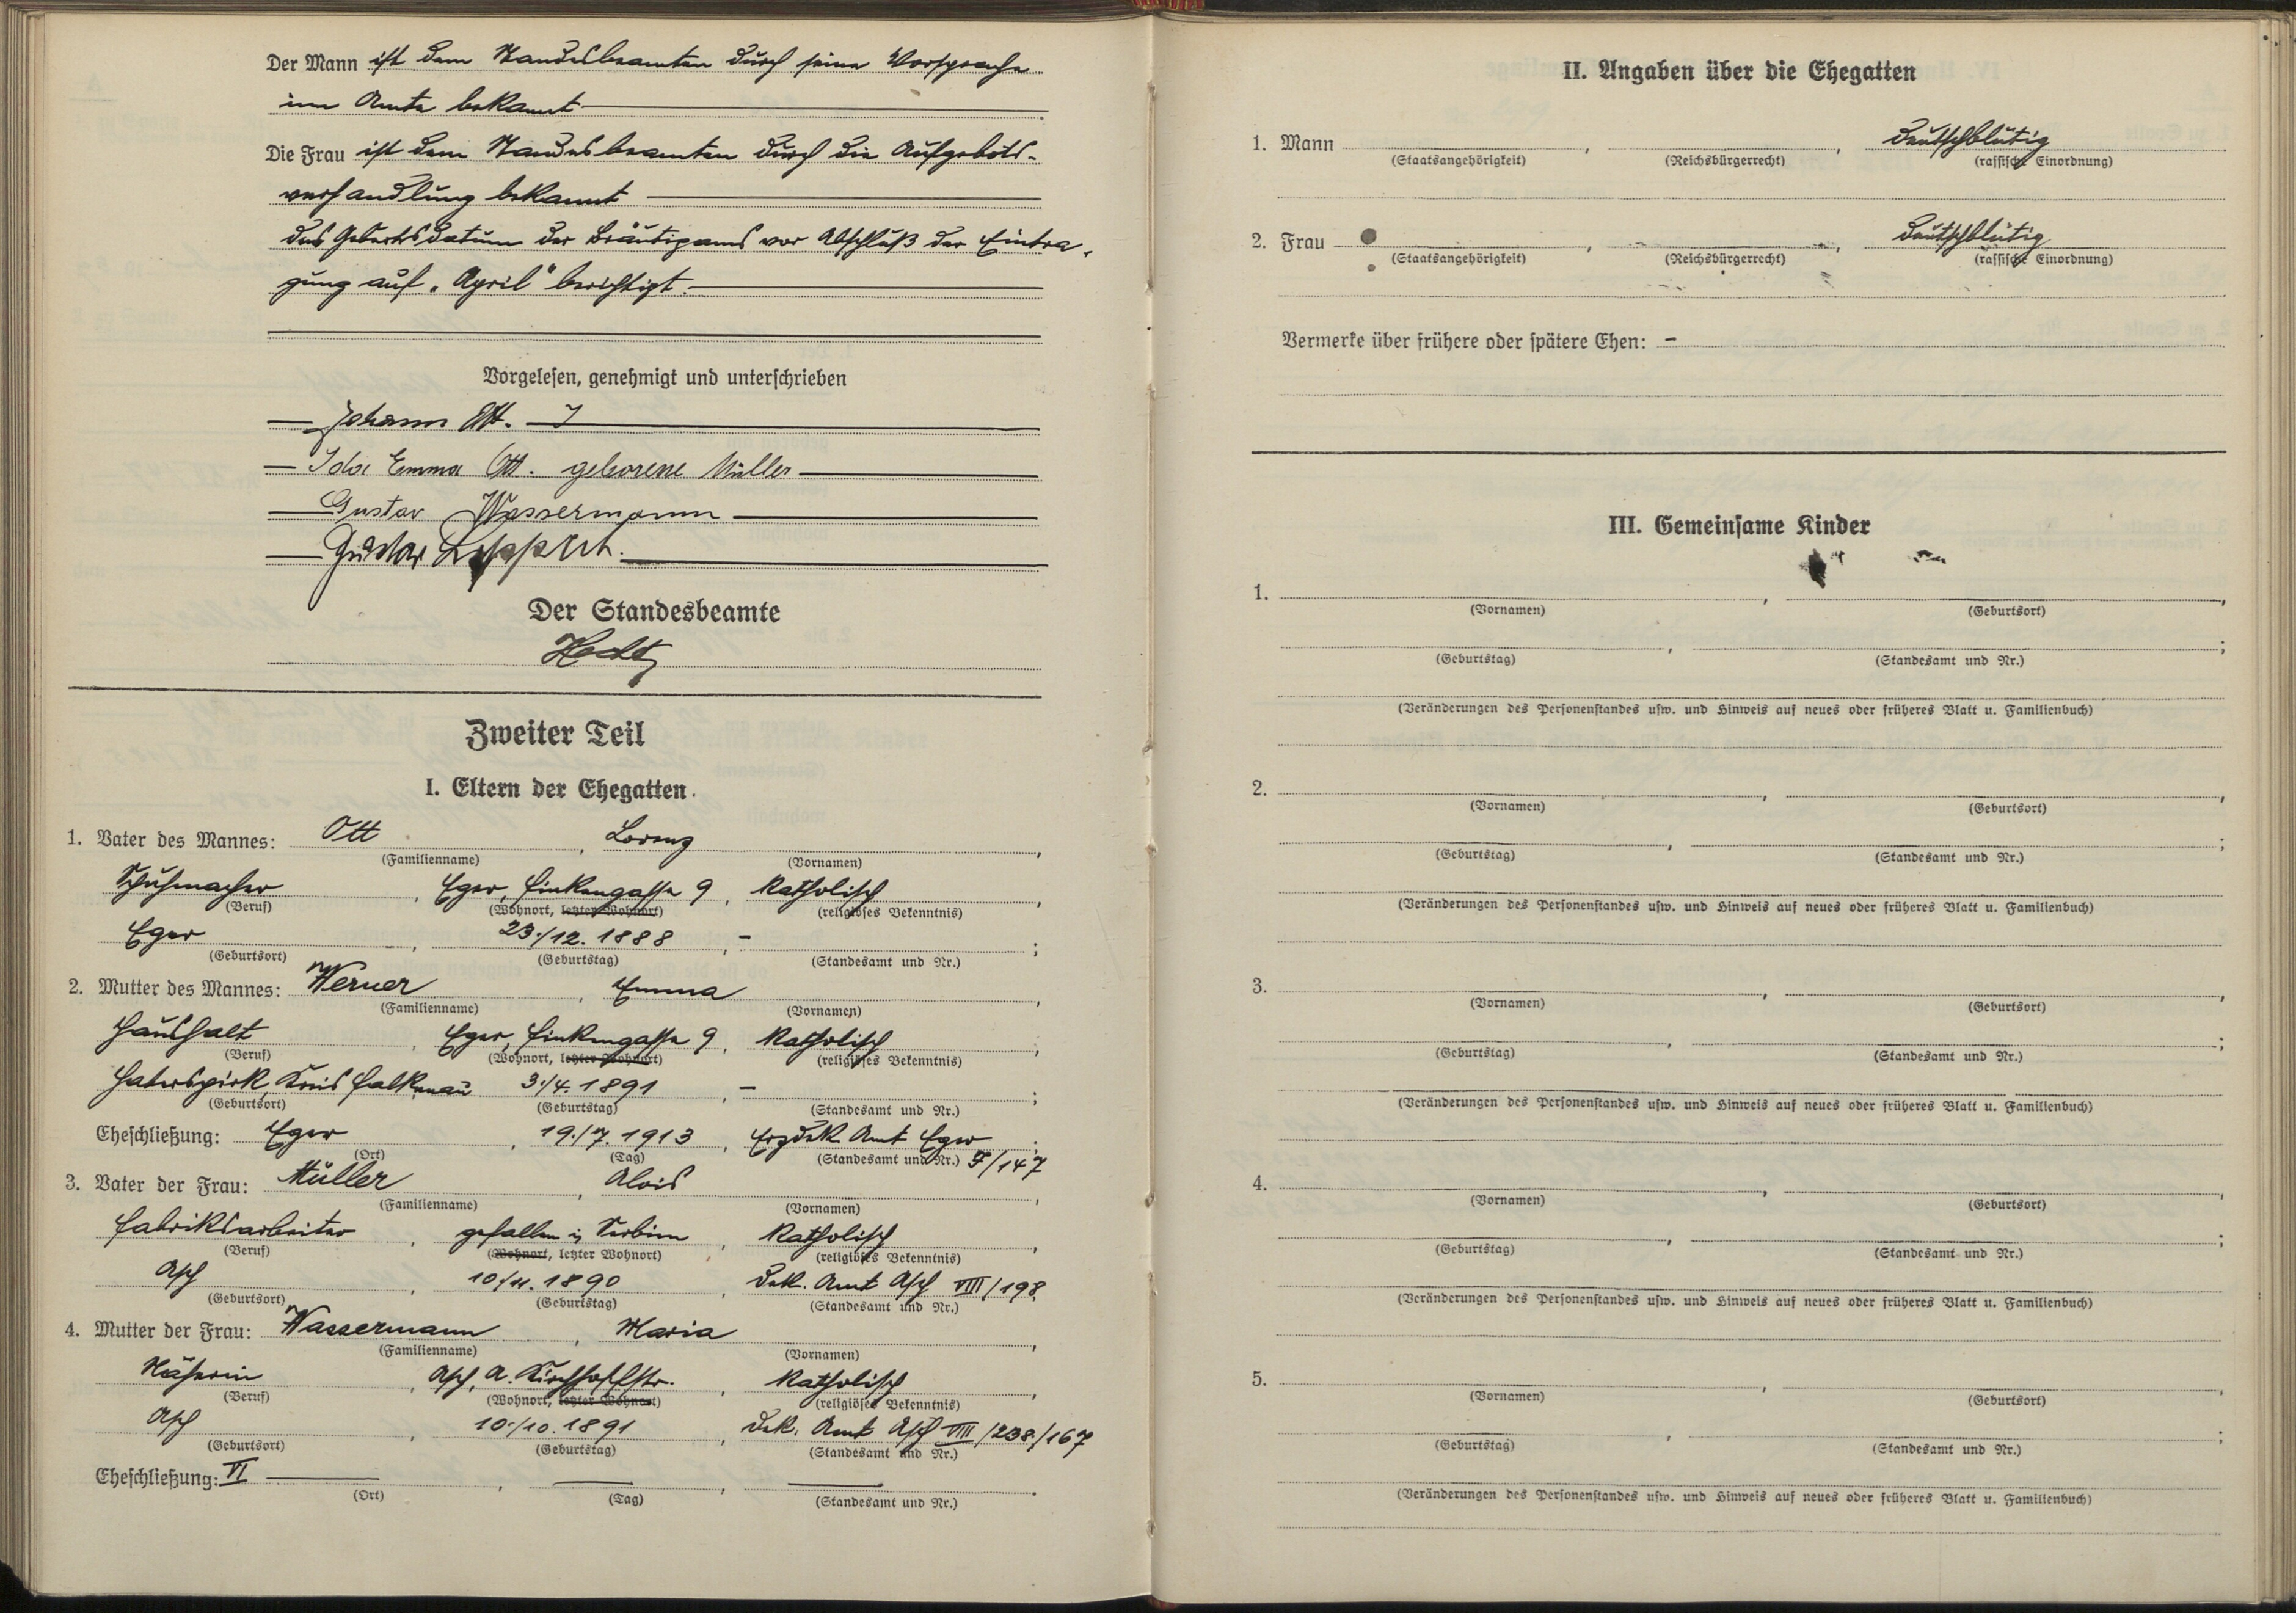 Der Mann ist dem Standesbeamten durch seine Vorsprache
im Amte bekannt
Die Frau ist dem Standesbeamten durch die Aufgebots-
verhandlung bekannt
das Geburtsdatum des Bräutigams vor Abschluß der Eintra-
gung auf „April" berichtigt.
Vorgelesen, genehmigt und unterschrieben
Johann Ott.
Ida Emma Ott. geborene Müller
Gustav Wassermann
Gustav
Der Standesbeamte
Zweiter Teil
I. Eltern der Ehegatten.
1. Vater des Mannes: Ott, Lorenz,
(Familienname) (Vornamen)
Schuhmacher, Eger, Finkengasse 9, katholisch,
(Beruf) (Wohnort, letzter Wohnort) (religiöses Bekenntnis)
Eger, 23./12. 1888, - ;
(Geburtsort) (Geburtstag) (Standesamt und Nr.)
2. Mutter des Mannes: Werner, Emma,
(Familienname) (Vornamen)
Haushalt, Eger, Finkengasse 9, katholisch,
(Beruf) (Wohnort, letzter Wohnort) (religiöses Bekenntnis)
Haberspirk, Kreis Falkenau 3./4. 1891, - ;
(Geburtsort) (Geburtstag) (Standesamt und Nr.)
Eheschließung: Eger, 19./7. 1913, Erzdek. Amt Eger
(Ort) (Tag) (Standesamt und Nr.) /147
3. Vater der Frau: Müller, Alois,
(Familienname) (Vornamen)
Fabriksarbeiter, gefallen in Serbien, katholisch,
(Beruf) (Wohnort, letzter Wohnort) (religiöses Bekenntnis)
Asch, 10./11. 1890, Dek. Amt Asch VIII/198
(Geburtsort) (Geburtstag) (Standesamt und Nr.)
4. Mutter der Frau: Wassermann, Maria,
(Familienname) (Vornamen)
Näherin, Asch, A. Kirchhoffstr., katholisch,
(Beruf) (Wohnort, letzter Wohnort) (religiöses Bekenntnis)
Asch, 10./10. 1891, Dek. Amt Asch VIII/238/167
(Geburtsort) (Geburtstag) (Standesamt und Nr.)
Eheschließung: VI
(Ort) (Tag) (Standesamt und Nr.)
II. Angaben über die Ehegatten
1. Mann, , deutschblütig
(Staatsangehörigkeit) (Reichsbürgerrecht) (rassische Einordnung)
2. Frau, , deutschblütig
(Staatsangehörigkeit) (Reichsbürgerrecht) (rassische Einordnung)
Vermerke über frühere oder spätere Ehen: -
III. Gemeinsame Kinder
1.
(Vornamen) (Geburtsort)
(Geburtstag) (Standesamt und Nr.)
(Veränderungen des Personenstandes usw. und Hinweis auf neues oder früheres Blatt u. Familienbuch)
2.
(Vornamen) (Geburtsort)
(Geburtstag) (Standesamt und Nr.)
(Veränderungen des Personenstandes usw. und Hinweis auf neues oder früheres Blatt u. Familienbuch)
3.
(Vornamen) (Geburtsort)
(Geburtstag) (Standesamt und Nr.)
(Veränderungen des Personenstandes usw. und Hinweis auf neues oder früheres Blatt u. Familienbuch)
4.
(Vornamen) (Geburtsort)
(Geburtstag) (Standesamt und Nr.)
(Veränderungen des Personenstandes usw. und Hinweis auf neues oder früheres Blatt u. Familienbuch)
5.
(Vornamen) (Geburtsort)
(Geburtstag) (Standesamt und Nr.)
(Veränderungen des Personenstandes usw. und Hinweis auf neues oder früheres Blatt u. Familienbuch)